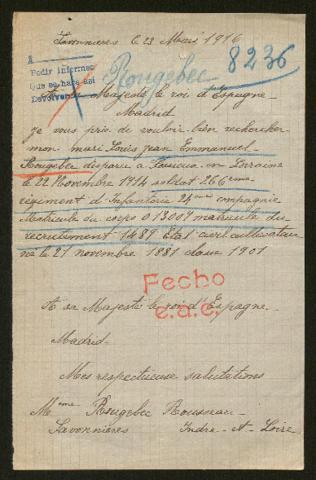 Savonnières le 23 Mars 1916
8236
A
Pedir informes
Que se hara así
Devolverla
Rougebec
A Sa Majesté le roi d'Espagne
Madrid
je vous prie de vouloir bien rechercher
mon mari Louis Jean Emmanuel
Rougebec disparu a en Lorraine
le 22 Novembre 1914 soldat 266eme
régiment d'Infanterie 24eme compagnie
Matricule du corps 013007 matricule du
recrutement 1489 Etat civil cultivateur
né le 21 novembre 1881 classe 1901
Fecho
e.a.c.
A sa Majesté le roi d'Espagne
Madrid
Mes respectueuse salutations
Me Rougebec Rousseau
Savonnières Indre-et-Loire